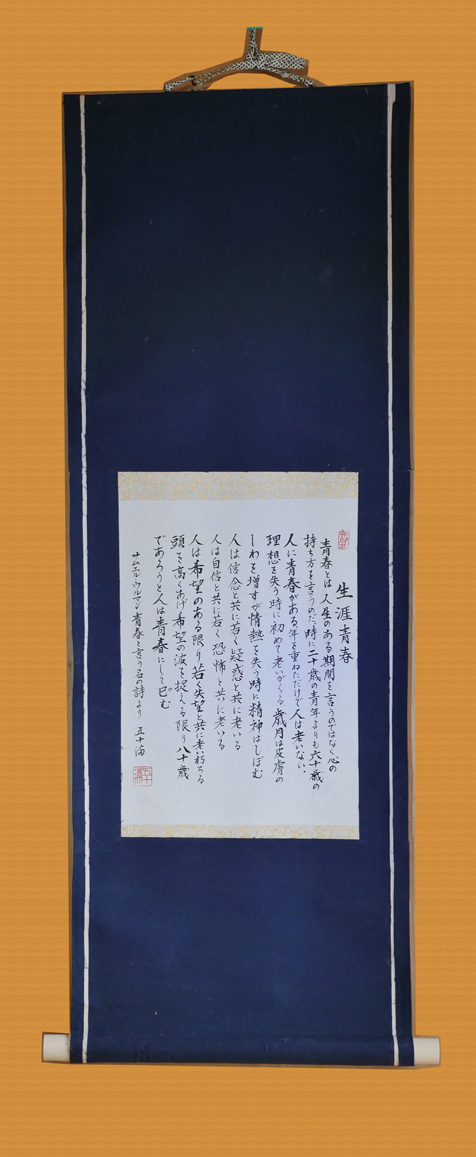 生涯青春
青春とは人生のある期間を言うのではなく心の
持ち方を言うのだ。時に二十歳の青年よりも六十歳の
人に青春がある。年を重ねただけで人は老いない。
理想を失う時に初めて老いがくる。歳月は皮膚の
しわを増すが情熱を失う時に精神はしぼむ
人は信念と共に若く疑惑と共に老いる
人は自信と共に若く恐怖と共に老いる
人は希望のある限り若く失望と共に老い朽ちる
頭を高くあげ希望の波を捉える限り八十歳
であろうと人は青春にして已む
サムエル・ウルマン青春と言う名の詩より 五十満